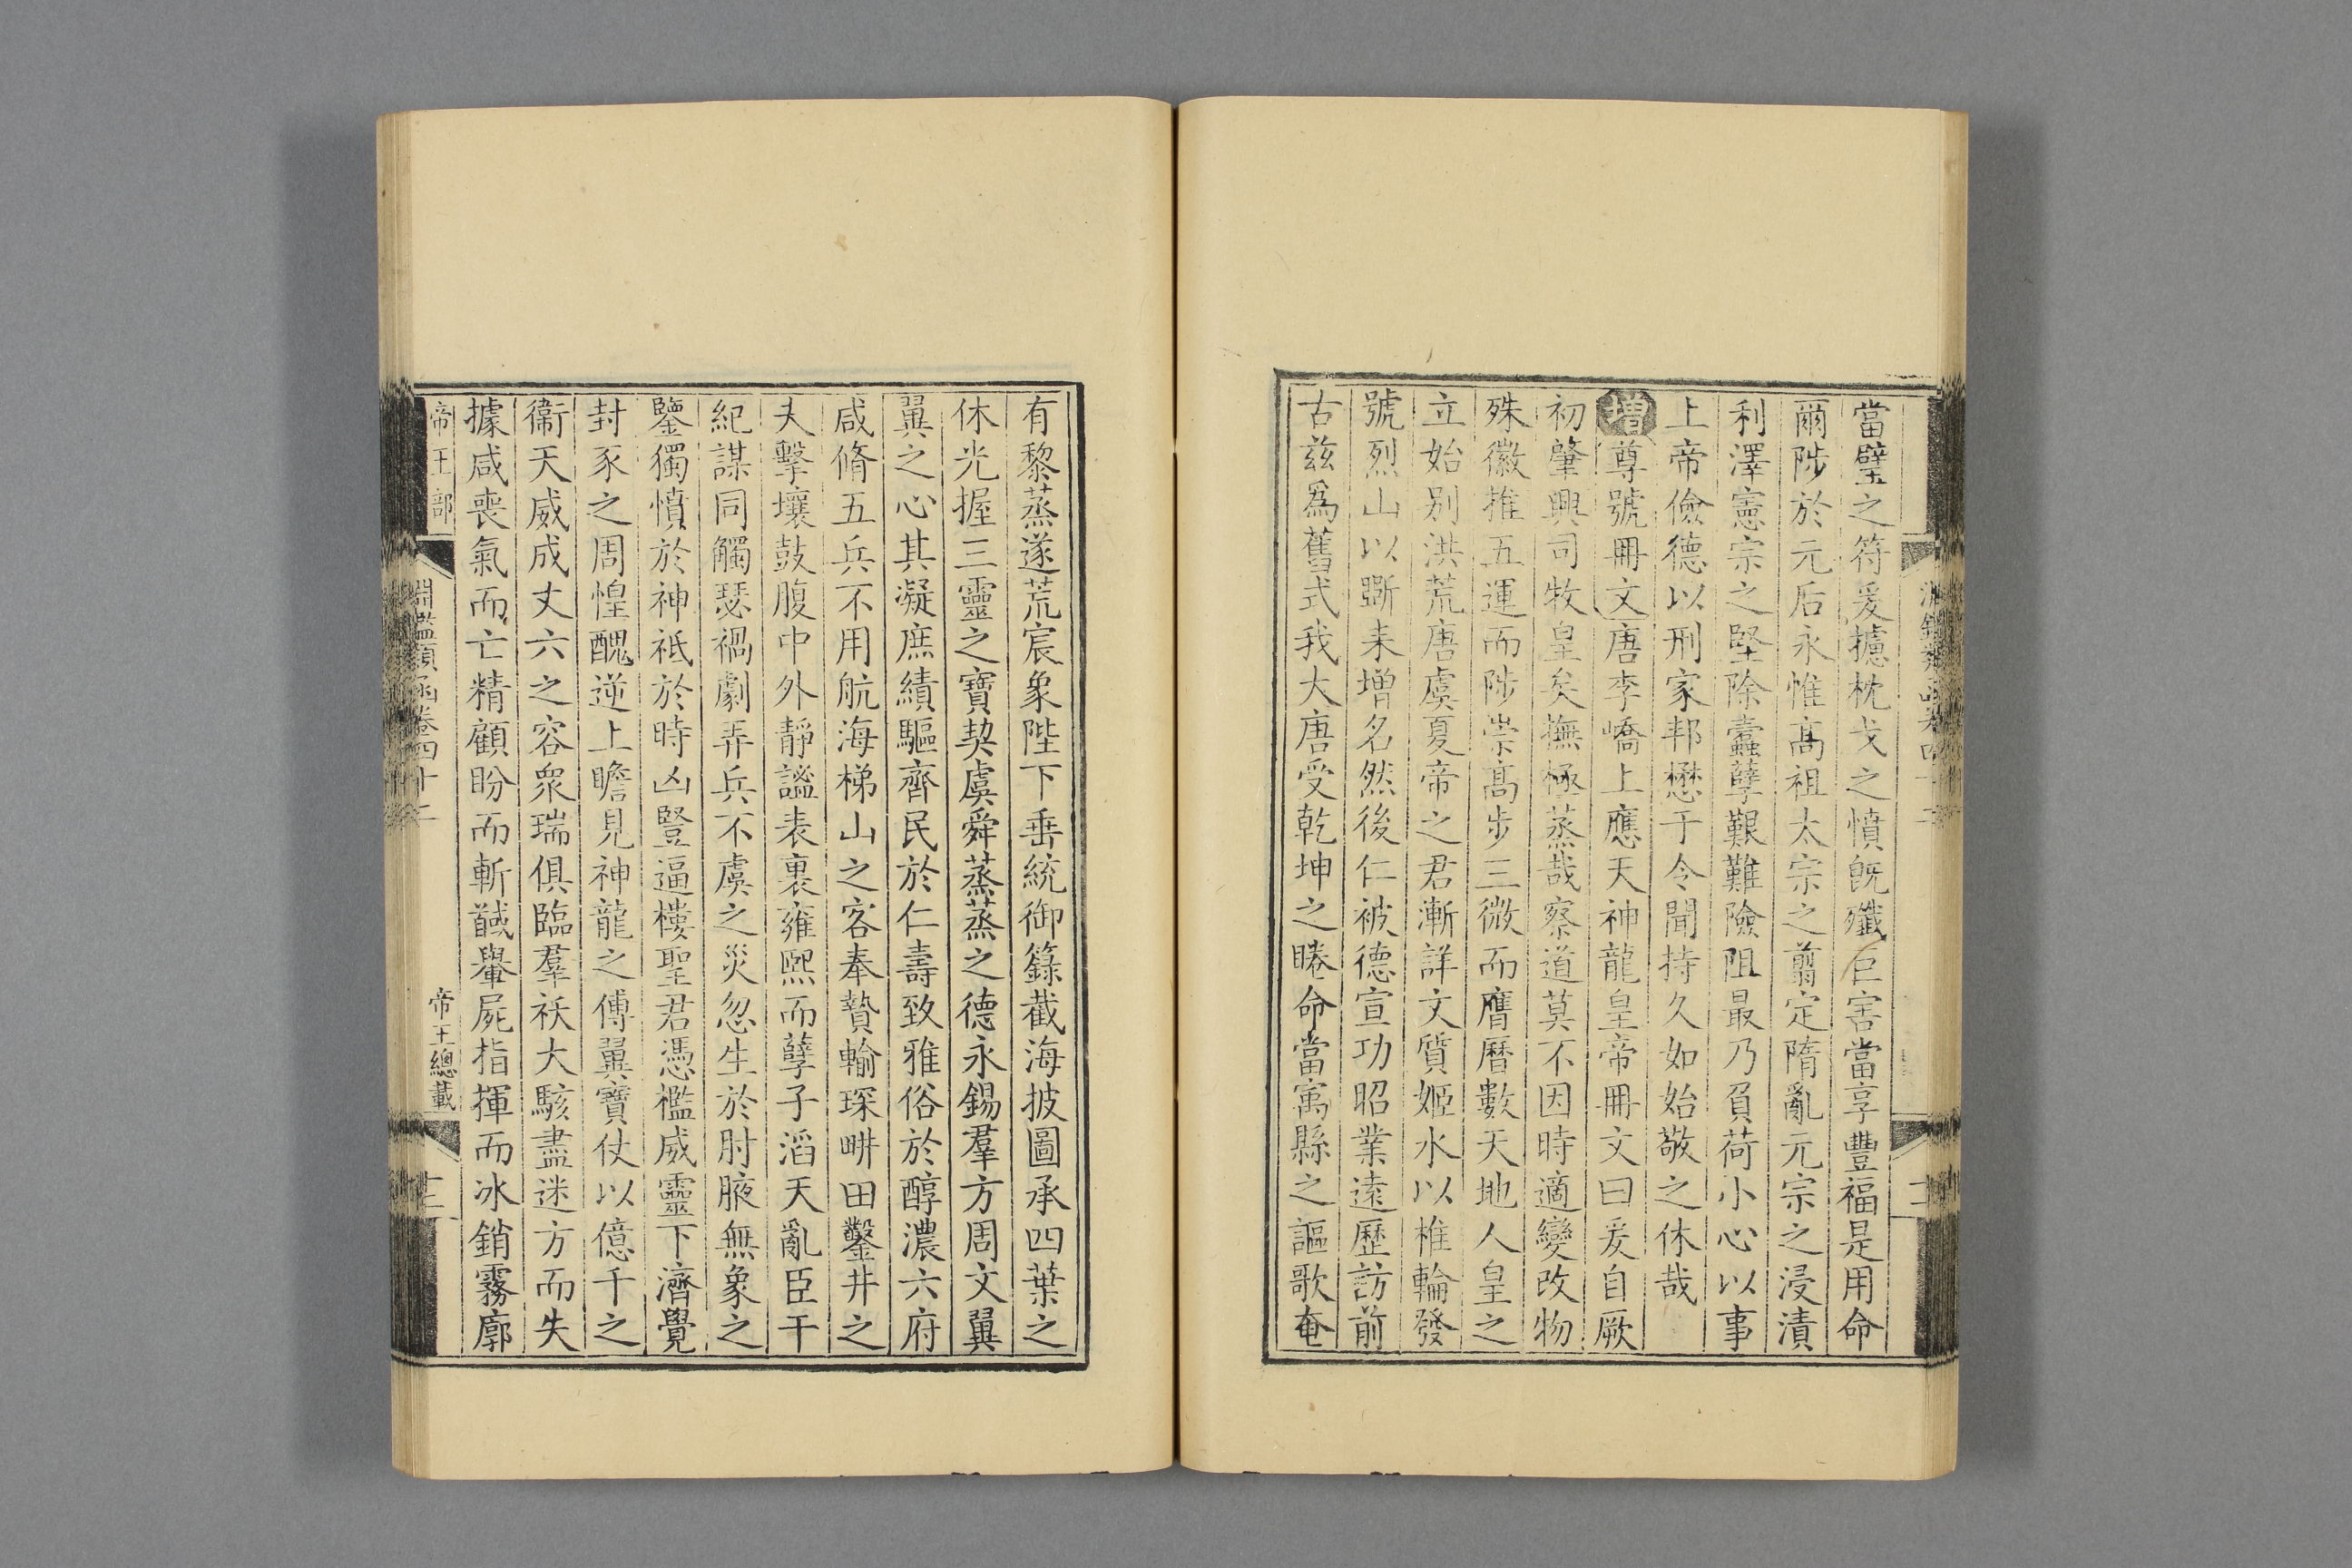 當璧之符爰攄枕戈之憤旣殲巨害當享豐福是用命
爾陟於元后永惟高祖太宗之翦定隋亂元宗之浸漬
利澤憲宗之堅除蠹孽艱難險阻最乃負荷小心以事
上帝儉德以刑家邦懋于令聞持久如始敬之休哉
增尊號冊文唐李嶠上應天神龍皇帝冊文曰爰自厥
初肇興司牧皇矣撫極蒸哉察道莫不因時適變改物
殊徽推五運而陟崇高步三微而膺曆數天地人皇之
立始別洪荒唐虞夏帝之君漸詳文質姬水以椎輪發
號烈山以斲耒增名然後仁被德宣功昭業遠歷訪前
古玆爲舊式我大唐受乾坤之睠命當寓縣之謳歌奄
有黎蒸遂荒宸象陛下垂統御籙截海披圖承四葉之
休光握三靈之寶契虞舜蒸蒸之德永錫羣方周文翼
翼之心其凝庶績驅齊民於仁壽致雅俗於醇濃六府
咸脩五兵不用航海梯山之客奉贄輸琛畊田鑿井之
夫擊壤鼓腹中外靜謐表裏雍熙而孽子滔天亂臣干
紀謀同觸瑟禍劇弄兵不虞之災忽生於肘腋無象之
鑒獨憤於神祇於時凶豎逼樓聖君憑檻威靈下濟覺
封豕之周惶醜逆上瞻見神龍之傅翼寶仗以億千之
衞天威成丈六之容衆瑞俱臨羣祅大駭盡迷方而失
據咸喪氣而亡精顧盼而斬馘轝屍指揮而冰銷霧廓
帝王部
淵鑑類函卷四十二
帝王總載